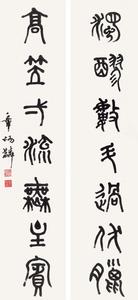 濁醪數斗過伏臘
高笠才流無主賓
章炳麟